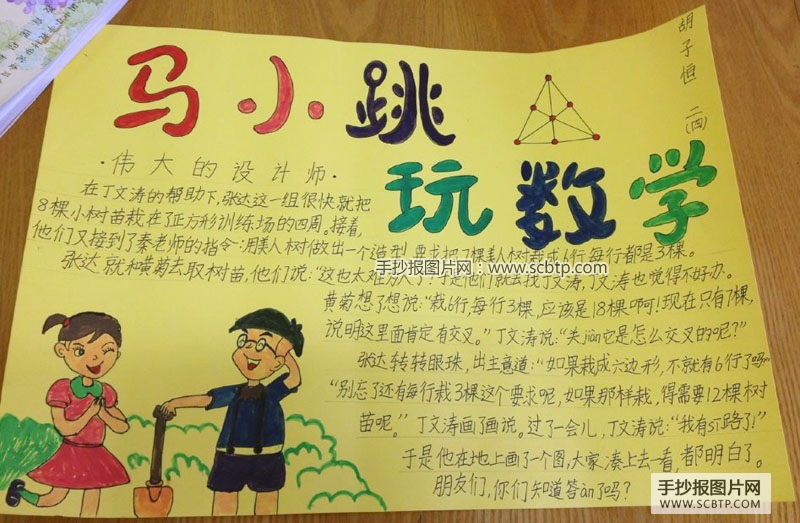 马小跳
玩数学
胡子恒 二(四)
·伟大的设计师·
在丁文涛的帮助下,张达这一组很快就把
8棵小树苗栽在了正方形训练场的四周。接着,
他们又接到了秦老师的指令:用美人树做出一个造型,要求把7棵美人树栽成6行,每行都是3棵。
张达就和黄菊去取树苗,他们说:“这也太难为人了!”于是他们就去找丁文涛,丁文涛也觉得不好办。
黄菊想了想说:“栽6行,每行3棵,应该是18棵啊!现在只有7棵,
说明这里面肯定有交叉。”丁文涛说:“关jiàn它是怎么交叉的呢?”
张达转转眼珠,出主意道:“如果栽成六边形,不就有6行了吗~
“别忘了还有每行栽3棵这个要求呢,如果那样栽,得需要12棵树
苗呢。”丁文涛画了画说。过了一会儿,丁文涛说:“我有sī路了!”
于是他在地上画了个图,大家凑上去一看,都明白了。
朋友们,你们知道答àn了吗?
手抄报图片网:www.scbtp.com
手抄报图片网
WWW.SCBTP.COM